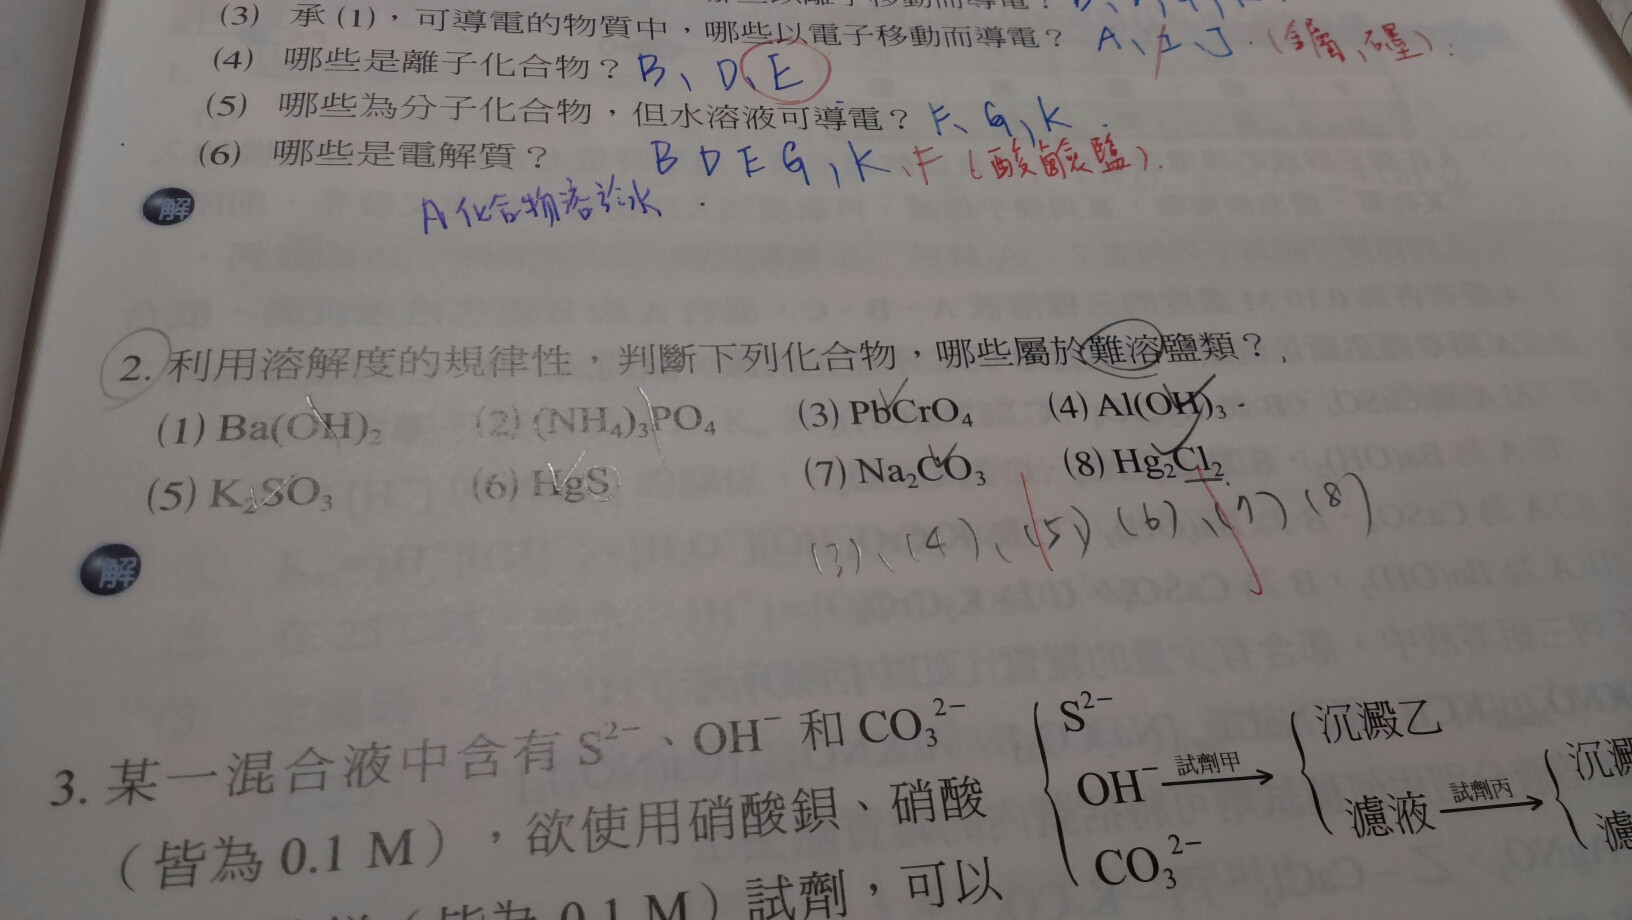 (3) 承(1),可導電的物質中,哪些以電子移動而導電? A、I、J.(金屬、石墨).
(4) 哪些是離子化合物? B、D、E
(5) 哪些為分子化合物,但水溶液可導電? F、G,K.
(6) 哪些是電解質? B D E G,K、F(酸鹼鹽).
解 A化合物溶於水.
2. 利用溶解度的規律性,判斷下列化合物,哪些屬於難溶鹽類?
(1) Ba(OH)₂ (2) (NH₄)₃PO₄ (3) PbCrO₄ (4) Al(OH)₃
(5) K₂SO₃ (6) HgS (7) Na₂CO₃ (8) Hg₂Cl₂
(3)、(4)、(5)、(6)、(7)、(8)
解
3. 某一混合液中含有 S²⁻、OH⁻ 和 CO₃²⁻
(皆為 0.1 M),欲使用硝酸鋇、硝酸
(皆為 0.1 M)試劑,可以
S²⁻
OH⁻
CO₃²⁻
試劑甲
沉澱乙
濾液
試劑丙
沉澱
濾